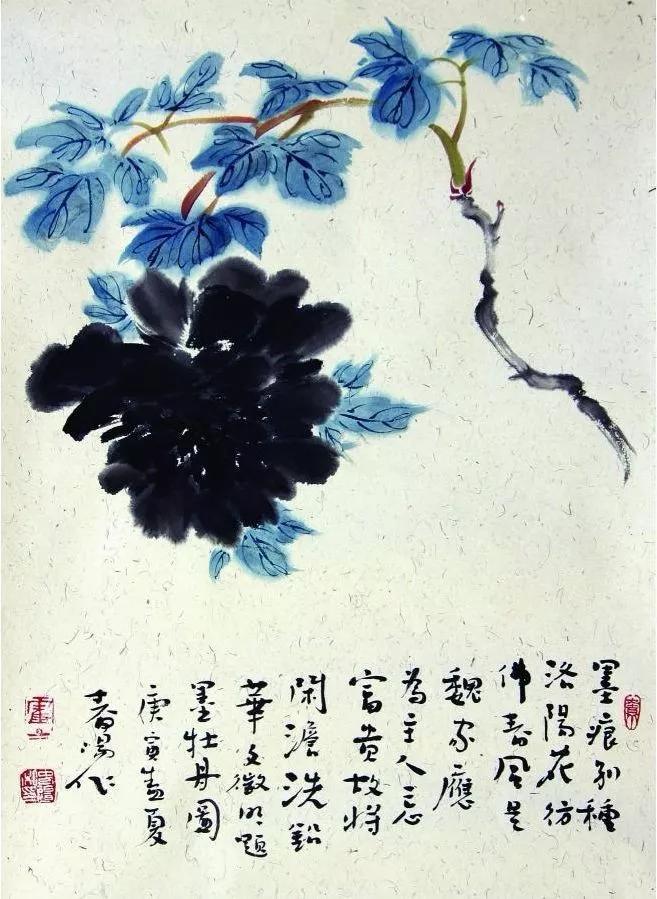 墨痕别種
洛陽花彷
彿春風是
魏家應
為主人忘
富貴故將
閑澹洗鉛
華文徵明題
墨牡丹圖
庚寅孟夏
作